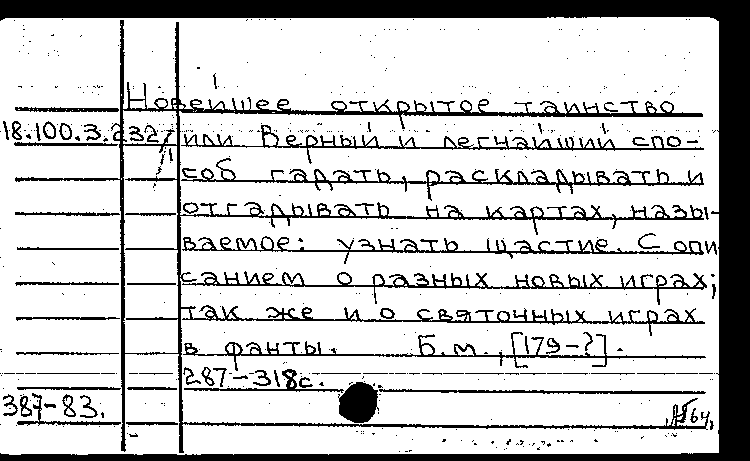 Новейшее открытое таинство
18.100.3.232 или Верный и легчайший спо-
соб гадать, раскладывать и
отгадывать на картах, назы-
ваемое: узнать щастие. С опи
санием о разных новых играх;
так же и о святочных играх
в фанты. Б.м., [179-?].
287-318с.
387-83.